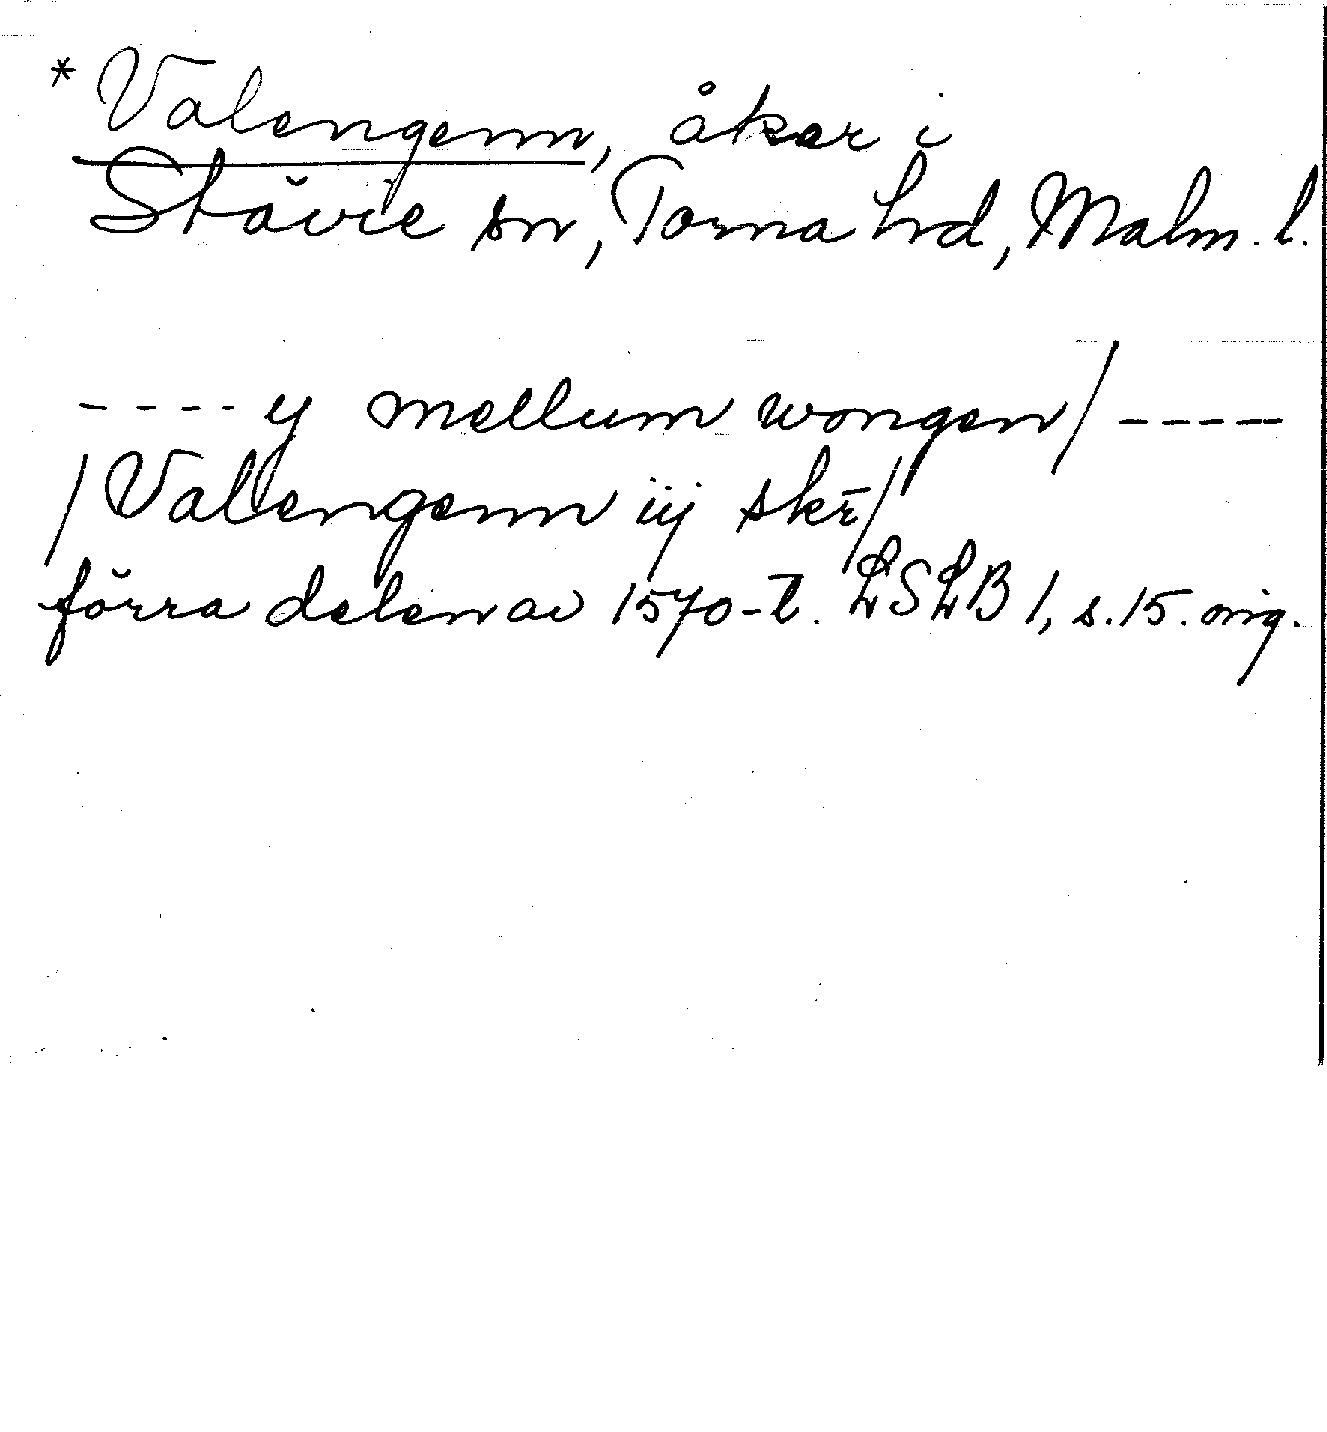 * Valengenn, åker i
Stävie sn, Torna hd, Malm. l.
---- y mellum wongen/ ----
/Valengenn iij skr̄/
förra delen av 1570-t. LSLB 1, s. 15. orig.